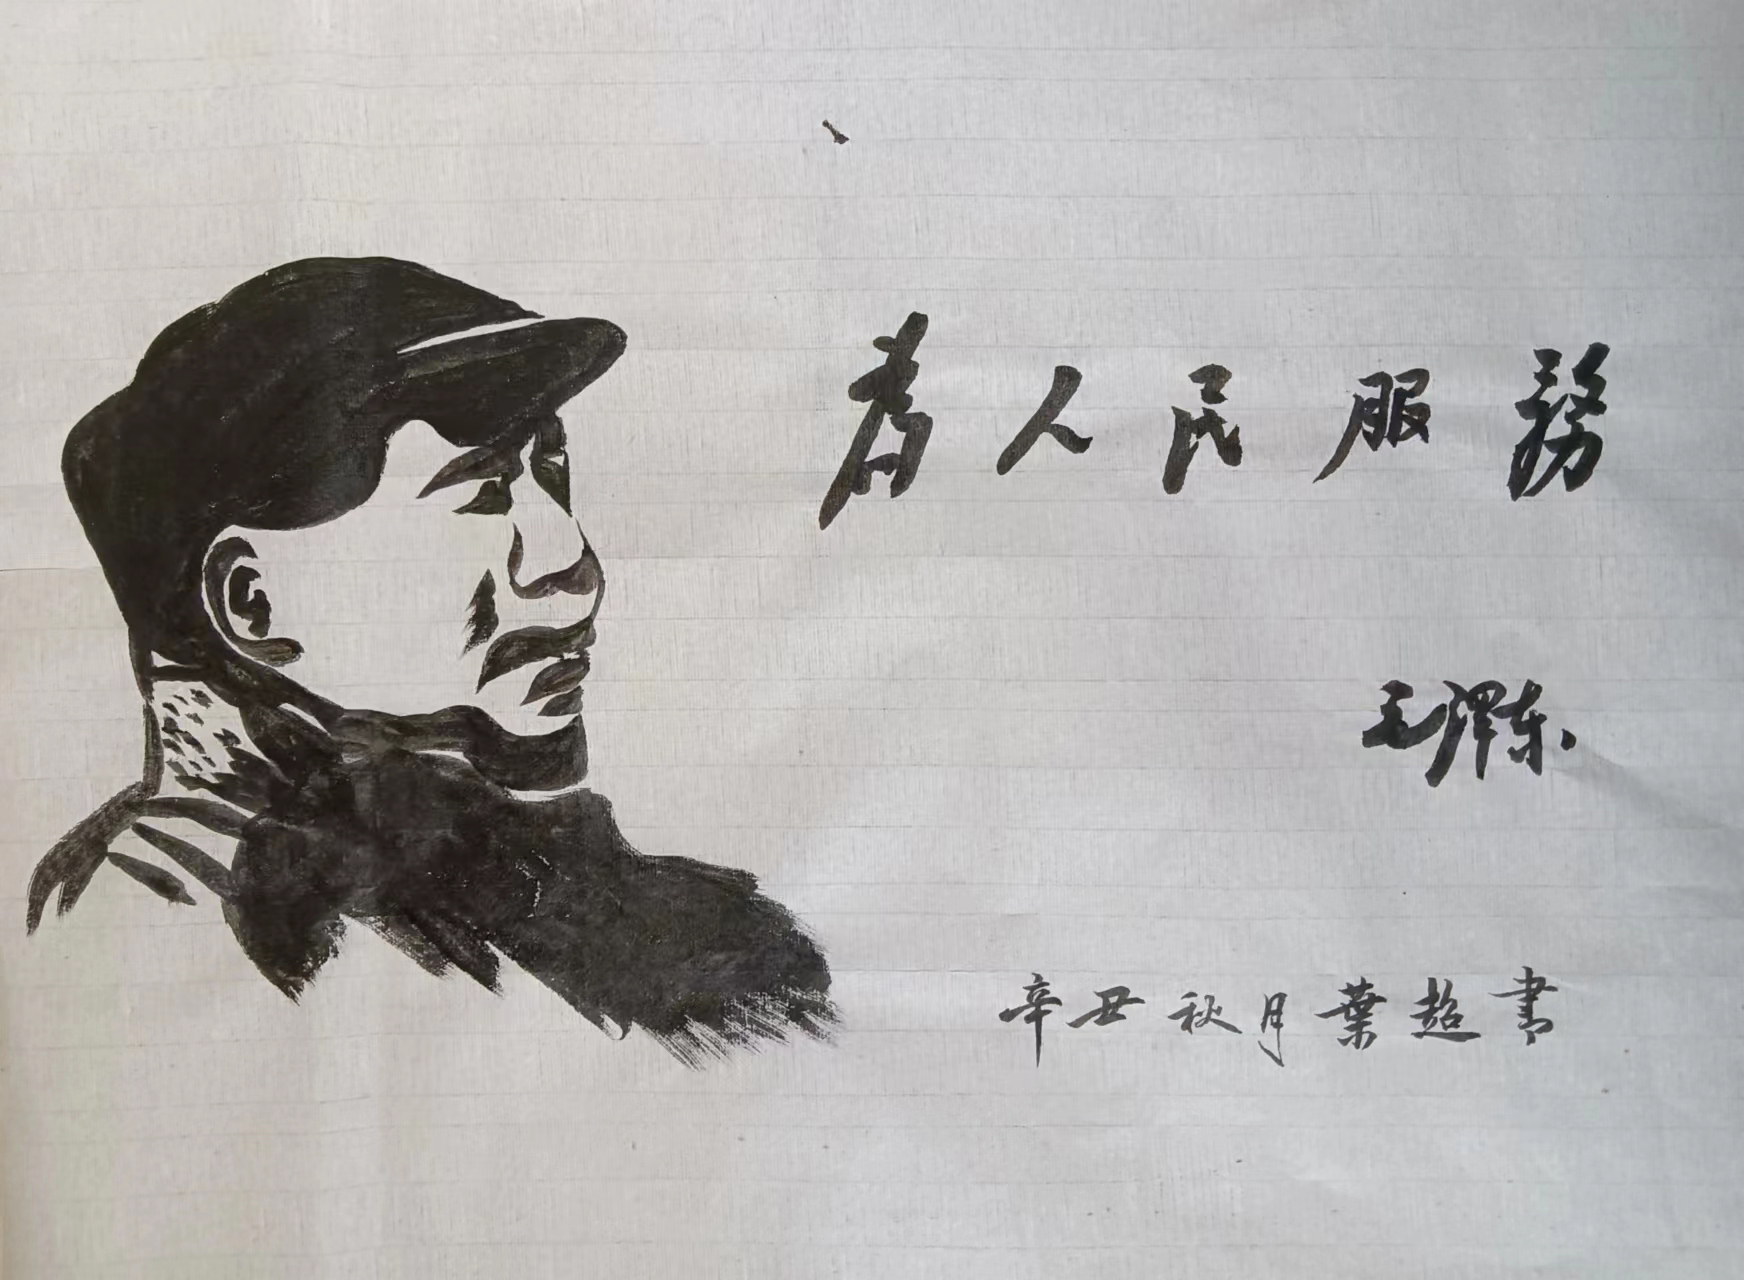 为人民服務
毛泽东
辛丑秋月葉超書